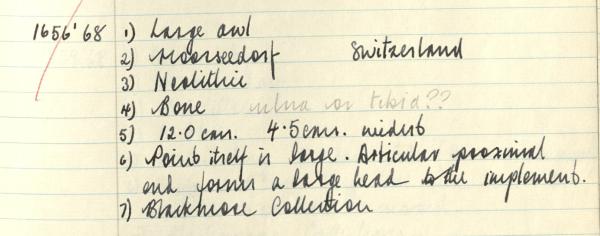 1656'68 1) Large awl
2) Moosseedorf Switzerland
3) Neolithic
4) Bone ulna or tibia??
5) 12.0 cms. 4.5 cms. widest
6) Point itself is large. Articular proximal
end forms a large head to the implement.
7) Blackmore Collection